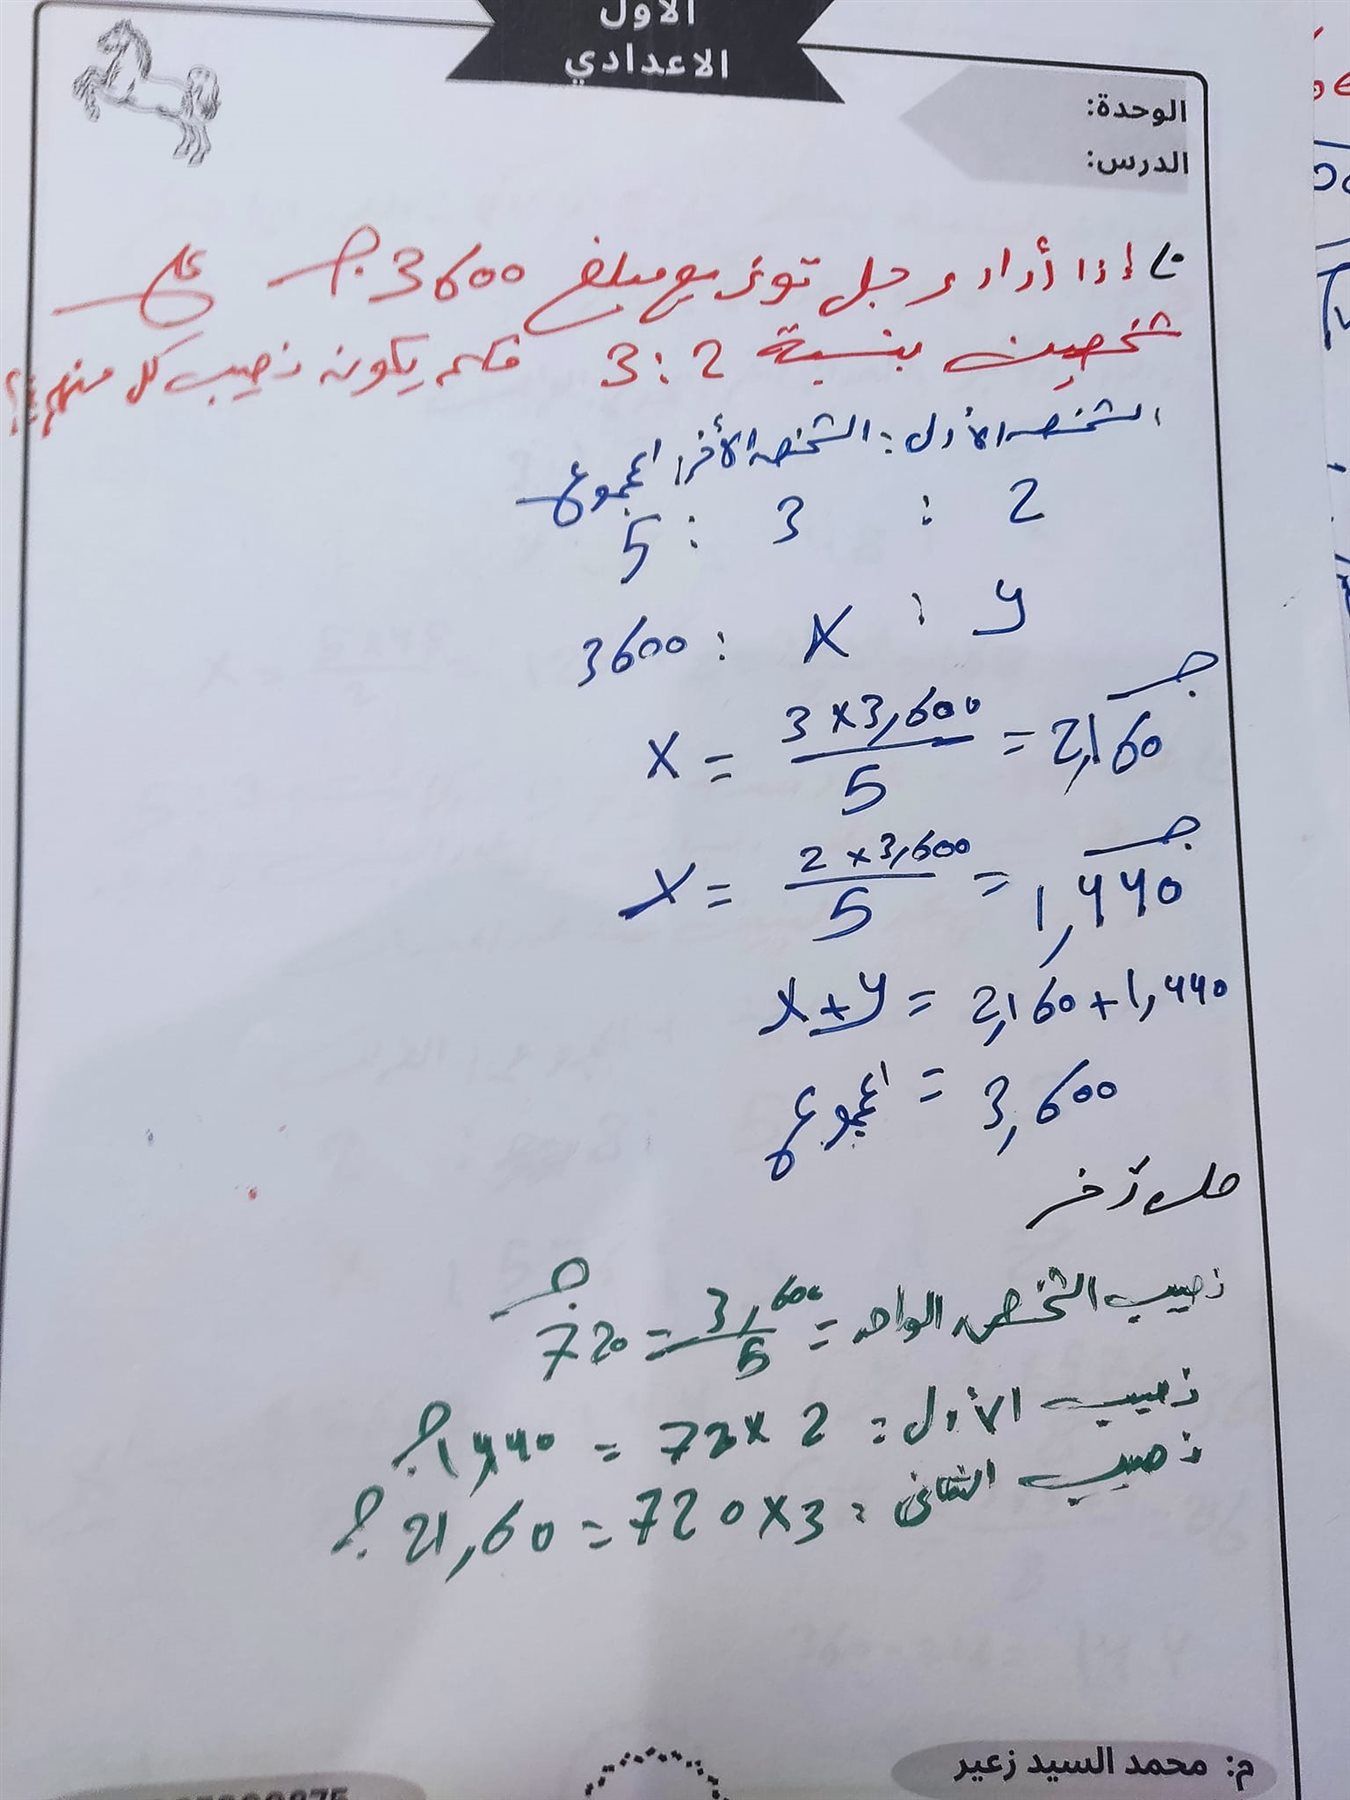 الأول
الاعدادي
الوحدة:
الدرس:
إذا أراد رجل توزيع مبلغ 3600 ج على
شخصين بنسبة 2 : 3 فكم يكون نصيب كل منهم؟
الشخص الأول : الشخص الأخر : المجموع
2 : 3 : 5
y : x : 3600
x = 3 x 3,600 / 5 = 2,160 ج
x = 2 x 3,600 / 5 = 1,440 ج
x + y = 2,160 + 1,440
المجموع = 3,600
حل آخر
نصيب الشخص الواحد = 3,600 / 5 = 720 ج
نصيب الأول = 720 x 2 = 1,440 ج
نصيب الثانى = 720 x 3 = 21,60 ج
م: محمد السيد زعير